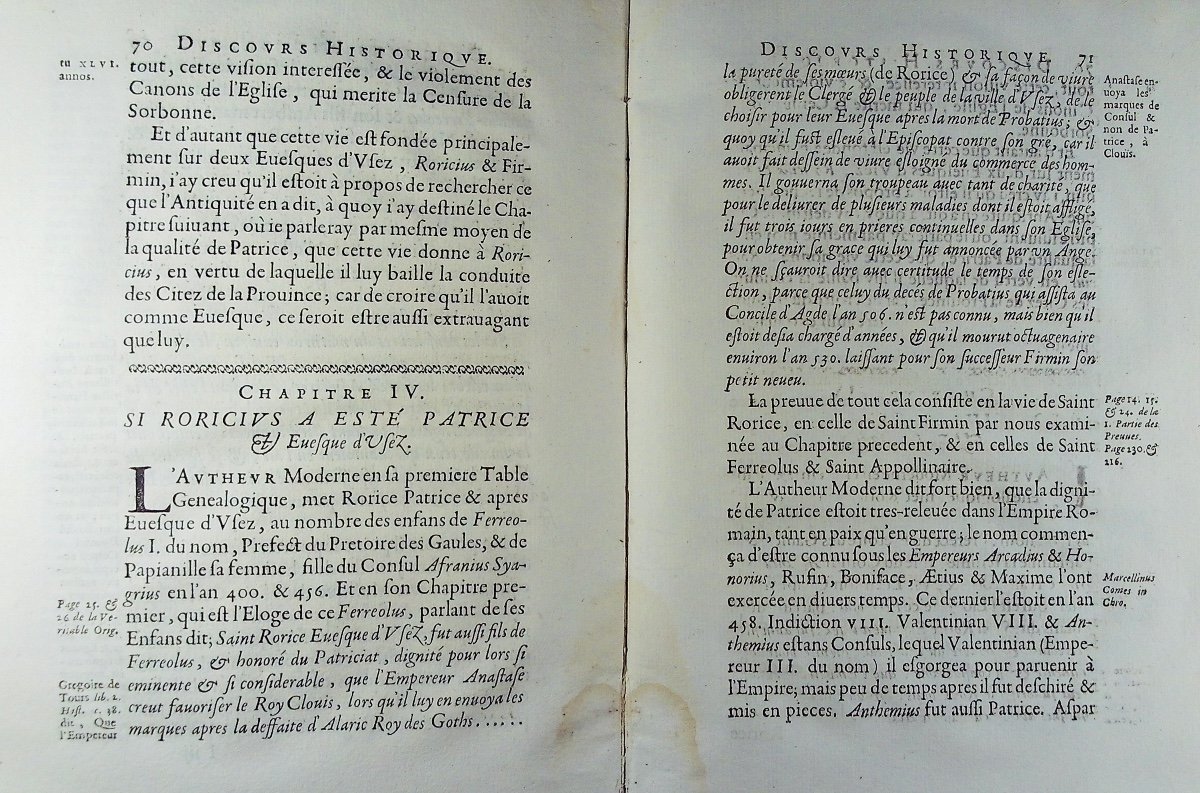 70 DISCOVRS HISTORIQVE.
tout, cette vision interessée, & le violement des
Canons de l'Eglise, qui merite la Censure de la
Sorbonne.
Et d'autant que cette vie est fondée principale-
ment sur deux Euesques d'Vsez, Roricius & Fir-
min, i'ay creu qu'il estoit à propos de rechercher ce
que l'Antiquité en a dit, à quoy i'ay destiné le Cha-
pitre suiuant, où ie parleray par mesme moyen de
la qualité de Patrice, que cette vie donne à Rori-
cius, en vertu de laquelle il luy baille la conduite
des Citez de la Prouince; car de croire qu'il l'auoit
comme Euesque, ce seroit estre aussi extrauagant
que luy.
CHAPITRE IV.
SI RORICIVS A ESTÉ PATRICE
& Euesque d'Vsez.
L'AVTHEVR Moderne en sa premiere Table
Genealogique, met Rorice Patrice & apres
Euesque d'Vsez, au nombre des enfans de Ferreo-
lus I. du nom, Prefect du Pretoire des Gaules, & de
Papianille sa femme, fille du Consul Afranius Sya-
grius en l'an 400. & 456. Et en son Chapitre pre-
mier, qui est l'Eloge de ce Ferreolus, parlant de ses
Enfans dit; Saint Rorice Euesque d'Vsez, fut aussi fils de
Ferreolus, & honoré du Patriciat, dignité pour lors si
eminente & si considerable, que l'Empereur Anastase
creut fauoriser le Roy Clouis, lors qu'il luy en enuoya les
marques apres la deffaite d'Alaric Roy des Goths......
tu XLVI.
annos.
Page 25. &
26 de la Ve-
ritable Orig.
Gregoire de
Tours lib. 2.
Hist. c. 38.
dit, Que
l'Empereur
DISCOVRS HISTORIQVE. 71
la pureté de ses mœurs (de Rorice) & sa façon de viure
obligerent le Clergé & le peuple de la ville d'Vsez, de le
choisir pour leur Euesque apres la mort de Probatius; &
quoy qu'il fust esleué à l'Episcopat contre son gré, car il
auoit fait dessein de viure esloigné du commerce des hom-
mes. Il gouuerna son troupeau auec tant de charité, que
pour le deliurer de plusieurs maladies dont il estoit affligé,
il fut trois iours en prieres continuelles dans son Eglise,
pour obtenir sa grace qui luy fut annoncée par vn Ange.
On ne sçauroit dire auec certitude le temps de son esle-
ction, parce que celuy du deces de Probatius qui assista au
Concile d'Agde l'an 506. n'est pas connu, mais bien qu'il
estoit desia chargé d'années, & qu'il mourut octuagenaire
enuiron l'an 530. laissant pour son successeur Firmin son
petit neueu.
La preuue de tout cela consiste en la vie de Saint
Rorice, en celle de Saint Firmin par nous exami-
née au Chapitre precedent, & en celles de Saint
Ferreolus & Saint Appollinaire.
L'Autheur Moderne dit fort bien, que la digni-
té de Patrice estoit tres-releuée dans l'Empire Ro-
main, tant en paix qu'en guerre; le nom commen-
ça d'estre connu sous les Empereurs Arcadius & Ho-
norius, Rufin, Boniface, Ætius & Maxime l'ont
exercée en diuers temps. Ce dernier l'estoit en l'an
458. Indiction VIII. Valentinian VIII. & An-
themius estans Consuls, lequel Valentinian (Empe-
reur III. du nom) il esgorgea pour paruenir à
l'Empire; mais peu de temps apres il fut deschiré &
mis en pieces. Anthemius fut aussi Patrice. Aspar
Anastase en-
uoya les
marques de
Consul &
non de Pa-
trice, à
Clouis.
Page 14. 15.
& 24. de la
1. Partie des
Preuues.
Page 230. &
216.
Marcellinus
Comes in
Chro.